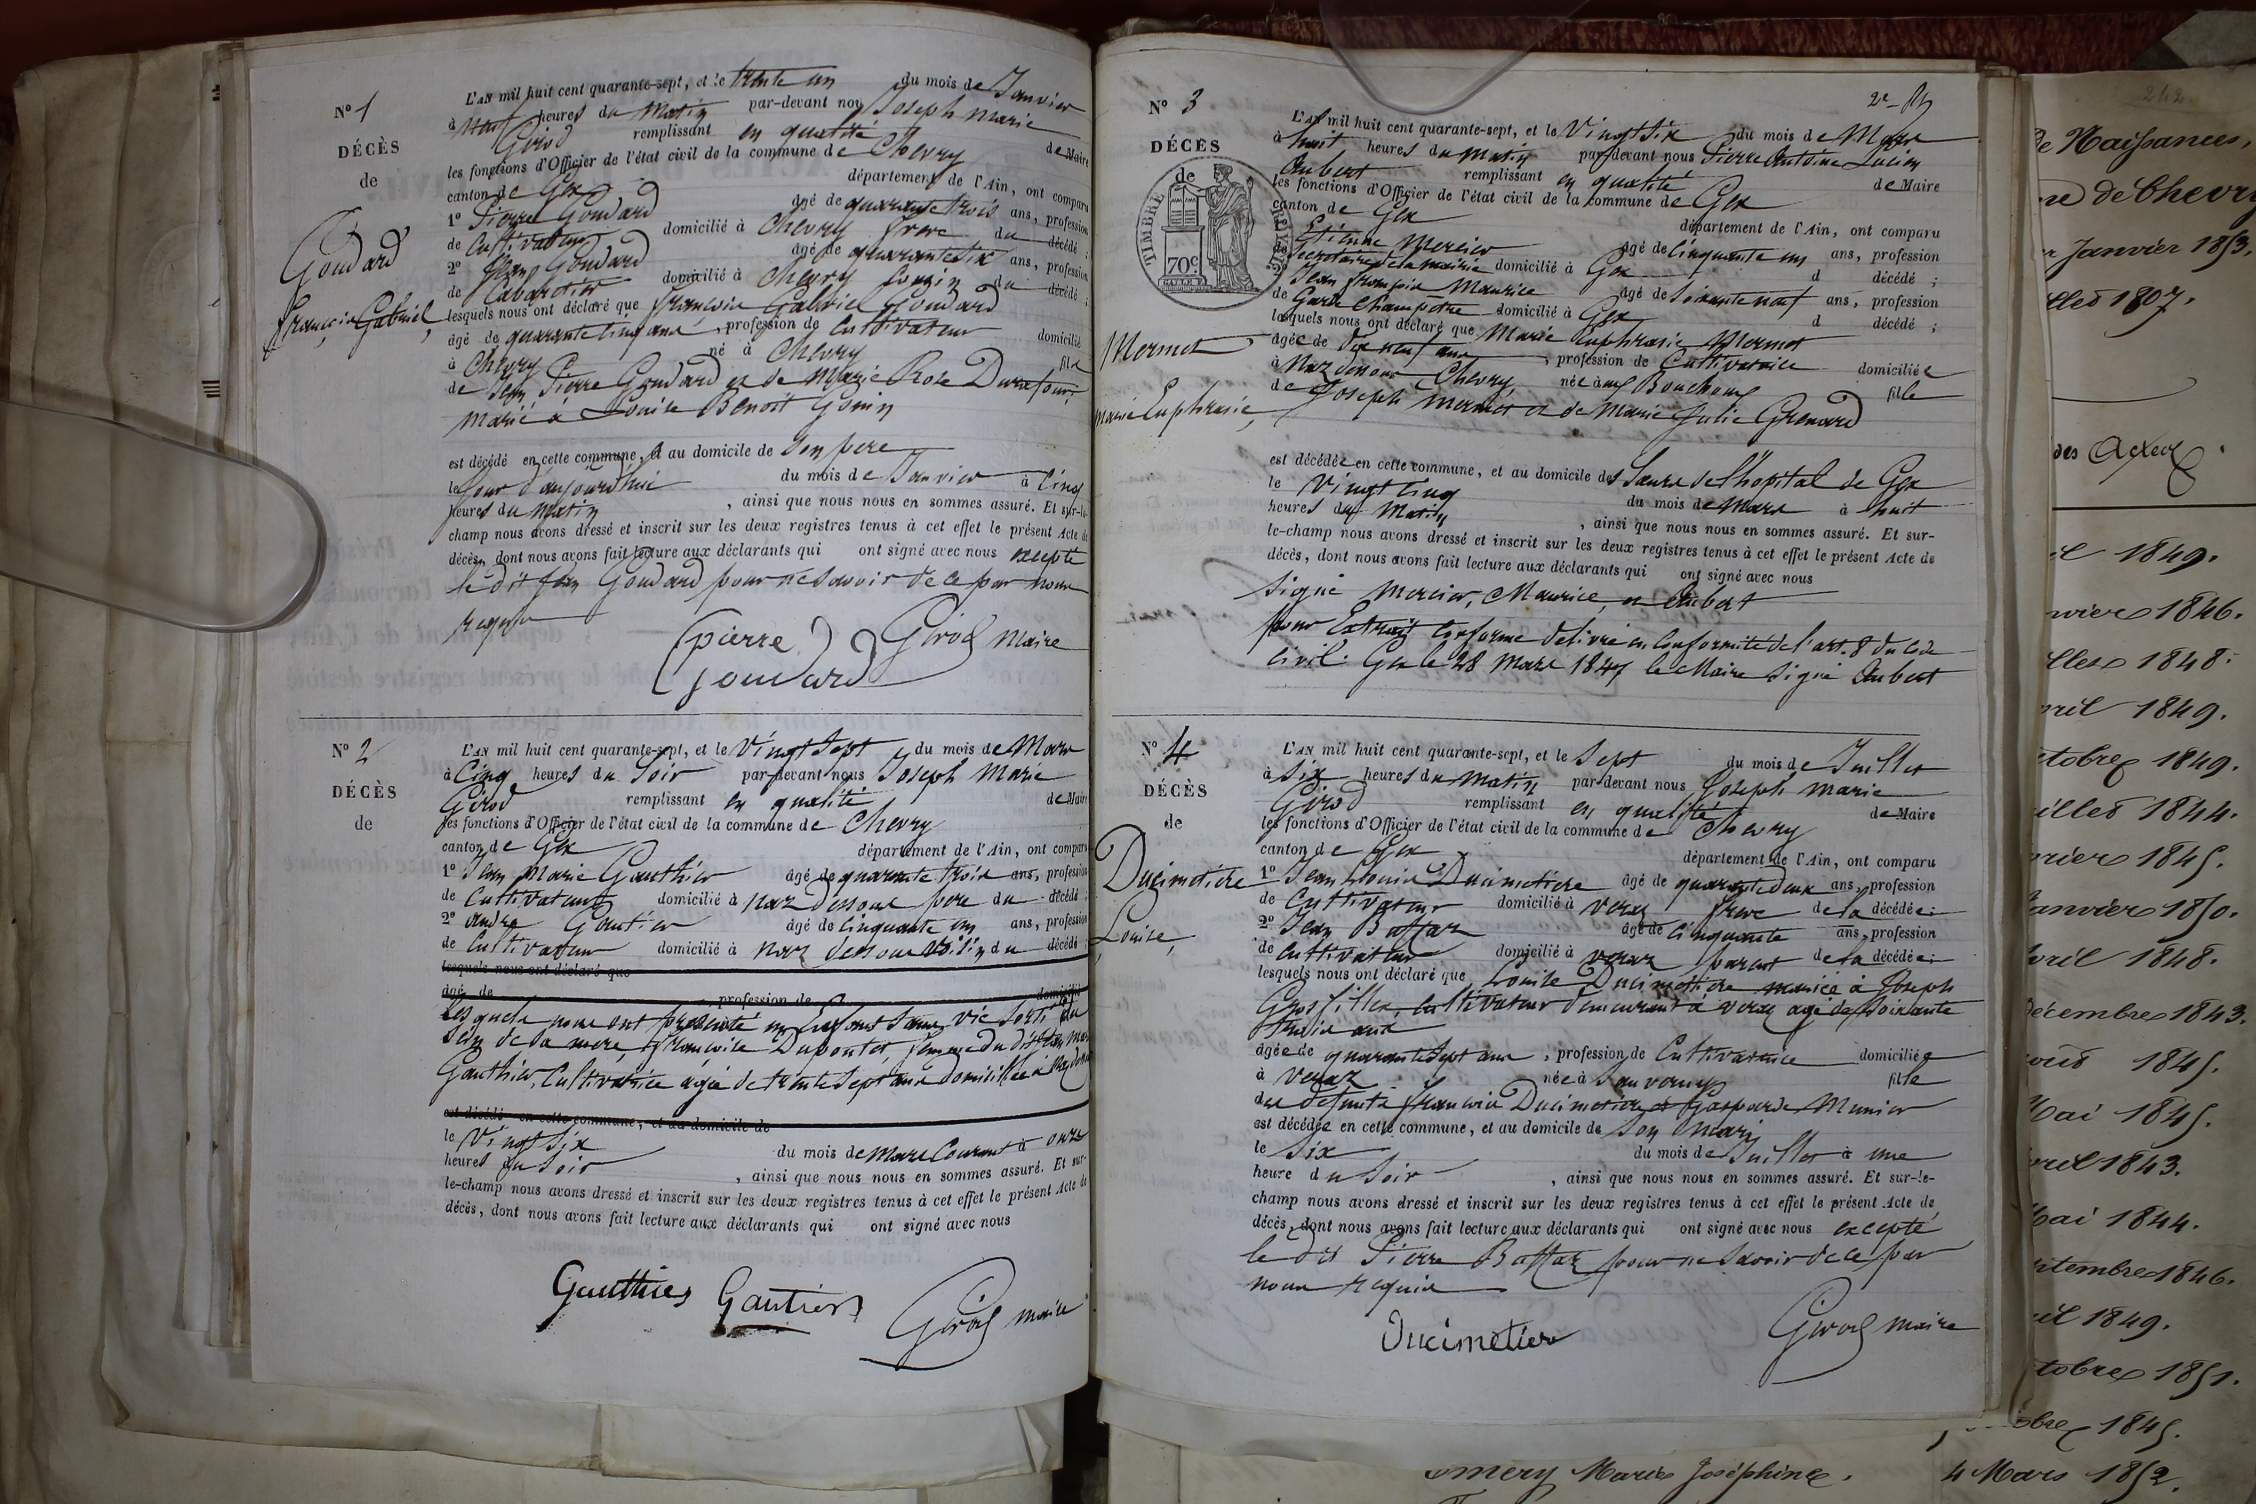 N° 1
DÉCÈS
de
Goudard
François Gabriel,
L'AN mil huit cent quarante-sept, et le trente un du mois de Janvier
à neuf heures du Matin par-devant nous Joseph Marie
Girod remplissant en qualité de Maire
les fonctions d'Officier de l'état civil de la commune de Chevry
canton de Gex département de l'Ain, ont comparu
1° Pierre Goudard agé de quarante trois ans, profession
de Cultivateur domicilié à Chevry frere du décédé ;
2° Jean Goudard agé de quarante six ans, profession
de Cabaretier domicilié à Chevry Cousin du décédé ;
lesquels nous ont déclaré que françois Gabriel Goudard
agé de quarante cinq ans, profession de Cultivateur domicilié
à Chevry né à Chevry fils
de Jean Pierre Goudard et de Marie Rose Durafour,
marié à Louise Benoit Gonin
est décédé en cette commune, et au domicile de son pere
le jour d'aujourd'hui du mois de Janvier à cinq
heures du Matin, ainsi que nous nous en sommes assuré. Et sur-le-
champ nous avons dressé et inscrit sur les deux registres tenus à cet effet le présent Acte de
décès, dont nous avons fait lecture aux déclarants qui ont signé avec nous excepté
le dit Jean Goudard pour ne savoir de ce par nous
requis
pierre Girod maire
goudard
N° 2
DÉCÈS
de
L'AN mil huit cent quarante-sept, et le Vingt sept du mois de Mars
à Cinq heures du Soir par-devant nous Joseph Marie
Girod remplissant en qualité de Maire
les fonctions d'Officier de l'état civil de la commune de Chevry
canton de Gex département de l'Ain, ont comparu
1° Jean Marie Gauthier agé de quarante trois ans, profession
de Cultivateur domicilié à Naz dessous pere du décédé ;
2° andré Gautier agé de cinquante un ans, profession
de Cultivateur domicilié à Naz dessous voisin du décédé ;
lesquels nous ont déclaré que
agé de profession de domicilié
Les quels nous ont présenté un Enfant sans vie sorti du
sein de sa mere, françoise Dupontet, femme du dit Jean Marie
Gauthier, Cultivatrice agée de trente sept ans domiciliée à Naz dessous
est décédé en cette commune, et au domicile de
le Vingt six du mois de Mars Courant à onze
heures du Soir, ainsi que nous nous en sommes assuré. Et sur-
le-champ nous avons dressé et inscrit sur les deux registres tenus à cet effet le présent Acte de
décès, dont nous avons fait lecture aux déclarants qui ont signé avec nous
Gauthier Gautier Girod maire
2e
N° 3
DÉCÈS
de
TIMBRE ROYAL
70c
Mermet
Marie Euphrasie,
L'AN mil huit cent quarante-sept, et le Vingt six du mois de Mars
à huit heures du Matin par-devant nous Pierre Antoine Lucien
Aubert remplissant en qualité de Maire
les fonctions d'Officier de l'état civil de la commune de Gex
canton de Gex département de l'Ain, ont comparu
Etienne Mercier agé de Cinquante un ans, profession
de Secrétaire de la mairie domicilié à Gex d décédé ;
Jean françois Maurice agé de soixante neuf ans, profession
de Garde Champêtre domicilié à Gex d décédé ;
lesquels nous ont déclaré que Marie Euphrasie Mermet
agée de dix neuf ans, profession de Cultivatrice domiciliée
à Naz dessous Chevry née aux Bouchoux fille
de Joseph Mermet et de Marie Julie Grenard
est décédée en cette commune, et au domicile des Sœurs de l'hopital de Gex
le Vingt Cinq du mois de Mars à huit
heures du Matin, ainsi que nous nous en sommes assuré. Et sur-
le-champ nous avons dressé et inscrit sur les deux registres tenus à cet effet le présent Acte de
décès, dont nous avons fait lecture aux déclarants qui ont signé avec nous
Signé Mercier, Maurice, et Aubert
pour Extrait Conforme delivré en Conformité de l'art. 8 du Code
Civil. Gex le 28 Mars 1847 le Maire signé Aubert
N° 4
DÉCÈS
de
Ducimetière
Louise,
L'AN mil huit cent quarante-sept, et le Sept du mois de Juillet
à Six heures du Matin par-devant nous Joseph Marie
Girod remplissant en qualité de Maire
les fonctions d'Officier de l'état civil de la commune de Chevry
canton de Gex département de l'Ain, ont comparu
1° Jean Louis Ducimetiere agé de quarante deux ans, profession
de Cultivateur domicilié à Veraz frere de la décédée ;
2° Jean Battaz agé de cinquante ans, profession
de Cultivateur domicilié à veraz parent de la décédée ;
lesquels nous ont déclaré que Louise Ducimetiere mariée à Joseph
Grosfillex, cultivateur demeurant à veraz agé de soixante
trois ans
agée de quarante sept ans, profession de Cultivatrice domiciliée
à Veraz née à Sauverny fille
du défunt françois Ducimetiere et Gasparde Munier
est décédée en cette commune, et au domicile de son mari
le Six du mois de Juillet à une
heure du Soir, ainsi que nous nous en sommes assuré. Et sur-le-
champ nous avons dressé et inscrit sur les deux registres tenus à cet effet le présent Acte de
décès, dont nous avons fait lecture aux déclarants qui ont signé avec nous excepté
le dit Pierre Battaz pour ne savoir de ce par
nous requis
Ducimetier Girod maire
242
de Naissances,
de Chevry
Janvier 1853.
1807.
des Actes
1849.
1846.
1848.
1849.
1849.
1844.
1845.
Janvier 1850.
avril 1848.
décembre 1843.
1845.
Mai 1845.
1843.
Mai 1844.
1846.
1849.
1851.
1845.
Marie Joséphine. 4 Mars 1852.